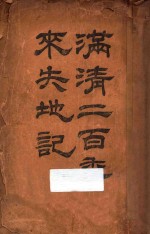 滿清二百年
來失地記